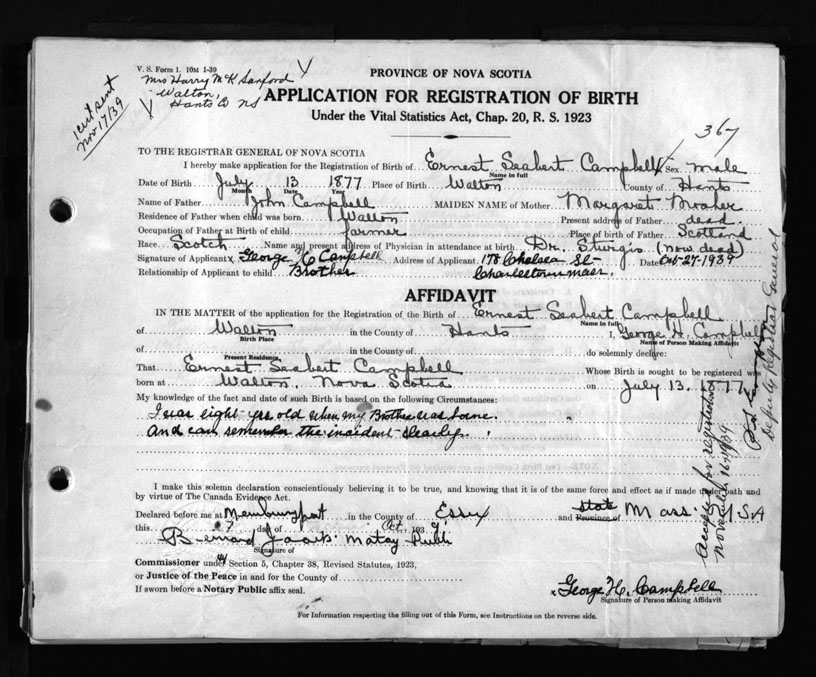 V. S. Form 1. 10M 1-39
Mrs Harry McK Sanford
Walton,
Hants Co NS
1 cert sent
Nov 17/39
PROVINCE OF NOVA SCOTIA
APPLICATION FOR REGISTRATION OF BIRTH
Under the Vital Statistics Act, Chap. 20, R. S. 1923
367
TO THE REGISTRAR GENERAL OF NOVA SCOTIA
I hereby make application for the Registration of Birth of Ernest Seabert Campbell Sex male
Name in full
Date of Birth July 13 1877 Place of Birth Walton County of Hants
Month Date Year
Name of Father John Campbell MAIDEN NAME of Mother Margaret Mosher
Residence of Father when child was born Walton Present address of Father dead
Occupation of Father at Birth of child farmer Place of birth of Father Scotland
Race Scotch Name and present address of Physician in attendance at birth Dr. Sturgis (now dead)
Signature of Applicant x George H Campbell Address of Applicant 178 Chelsea St- Date Oct-27-1939
Relationship of Applicant to child Brother Charlestown Mass.
AFFIDAVIT
IN THE MATTER of the application for the Registration of the Birth of Ernest Seabert Campbell
Name in full
of Walton in the County of Hants I, George H. Campbell
Birth Place Name of Person Making Affidavit
of in the County of do solemnly declare:
Present Residence
That Ernest Seabert Campbell Whose Birth is sought to be registered was
born at Walton, Nova Scotia on July 13, 1877
My knowledge of the fact and date of such Birth is based on the following Circumstances:
I was eight yrs old when my Brother was born.
and can remember the incident clearly.
I make this solemn declaration conscientiously believing it to be true, and knowing that it is of the same force and effect as if made under oath and
by virtue of The Canada Evidence Act.
Declared before me at Newburyport in the County of Essex and state Province of Mass. U.S.A
this 27 day of Oct 1939
Bernard Notary Public
Signature of
Commissioner under Section 5, Chapter 38, Revised Statutes, 1923,
or Justice of the Peace in and for the County of
If sworn before a Notary Public affix seal.
x George H. Campbell
Signature of Person making Affidavit
For Information respecting the filling out of this Form, see Instructions on the reverse side.
Accepted for registration
Nov 16 1939
Deputy Registrar General